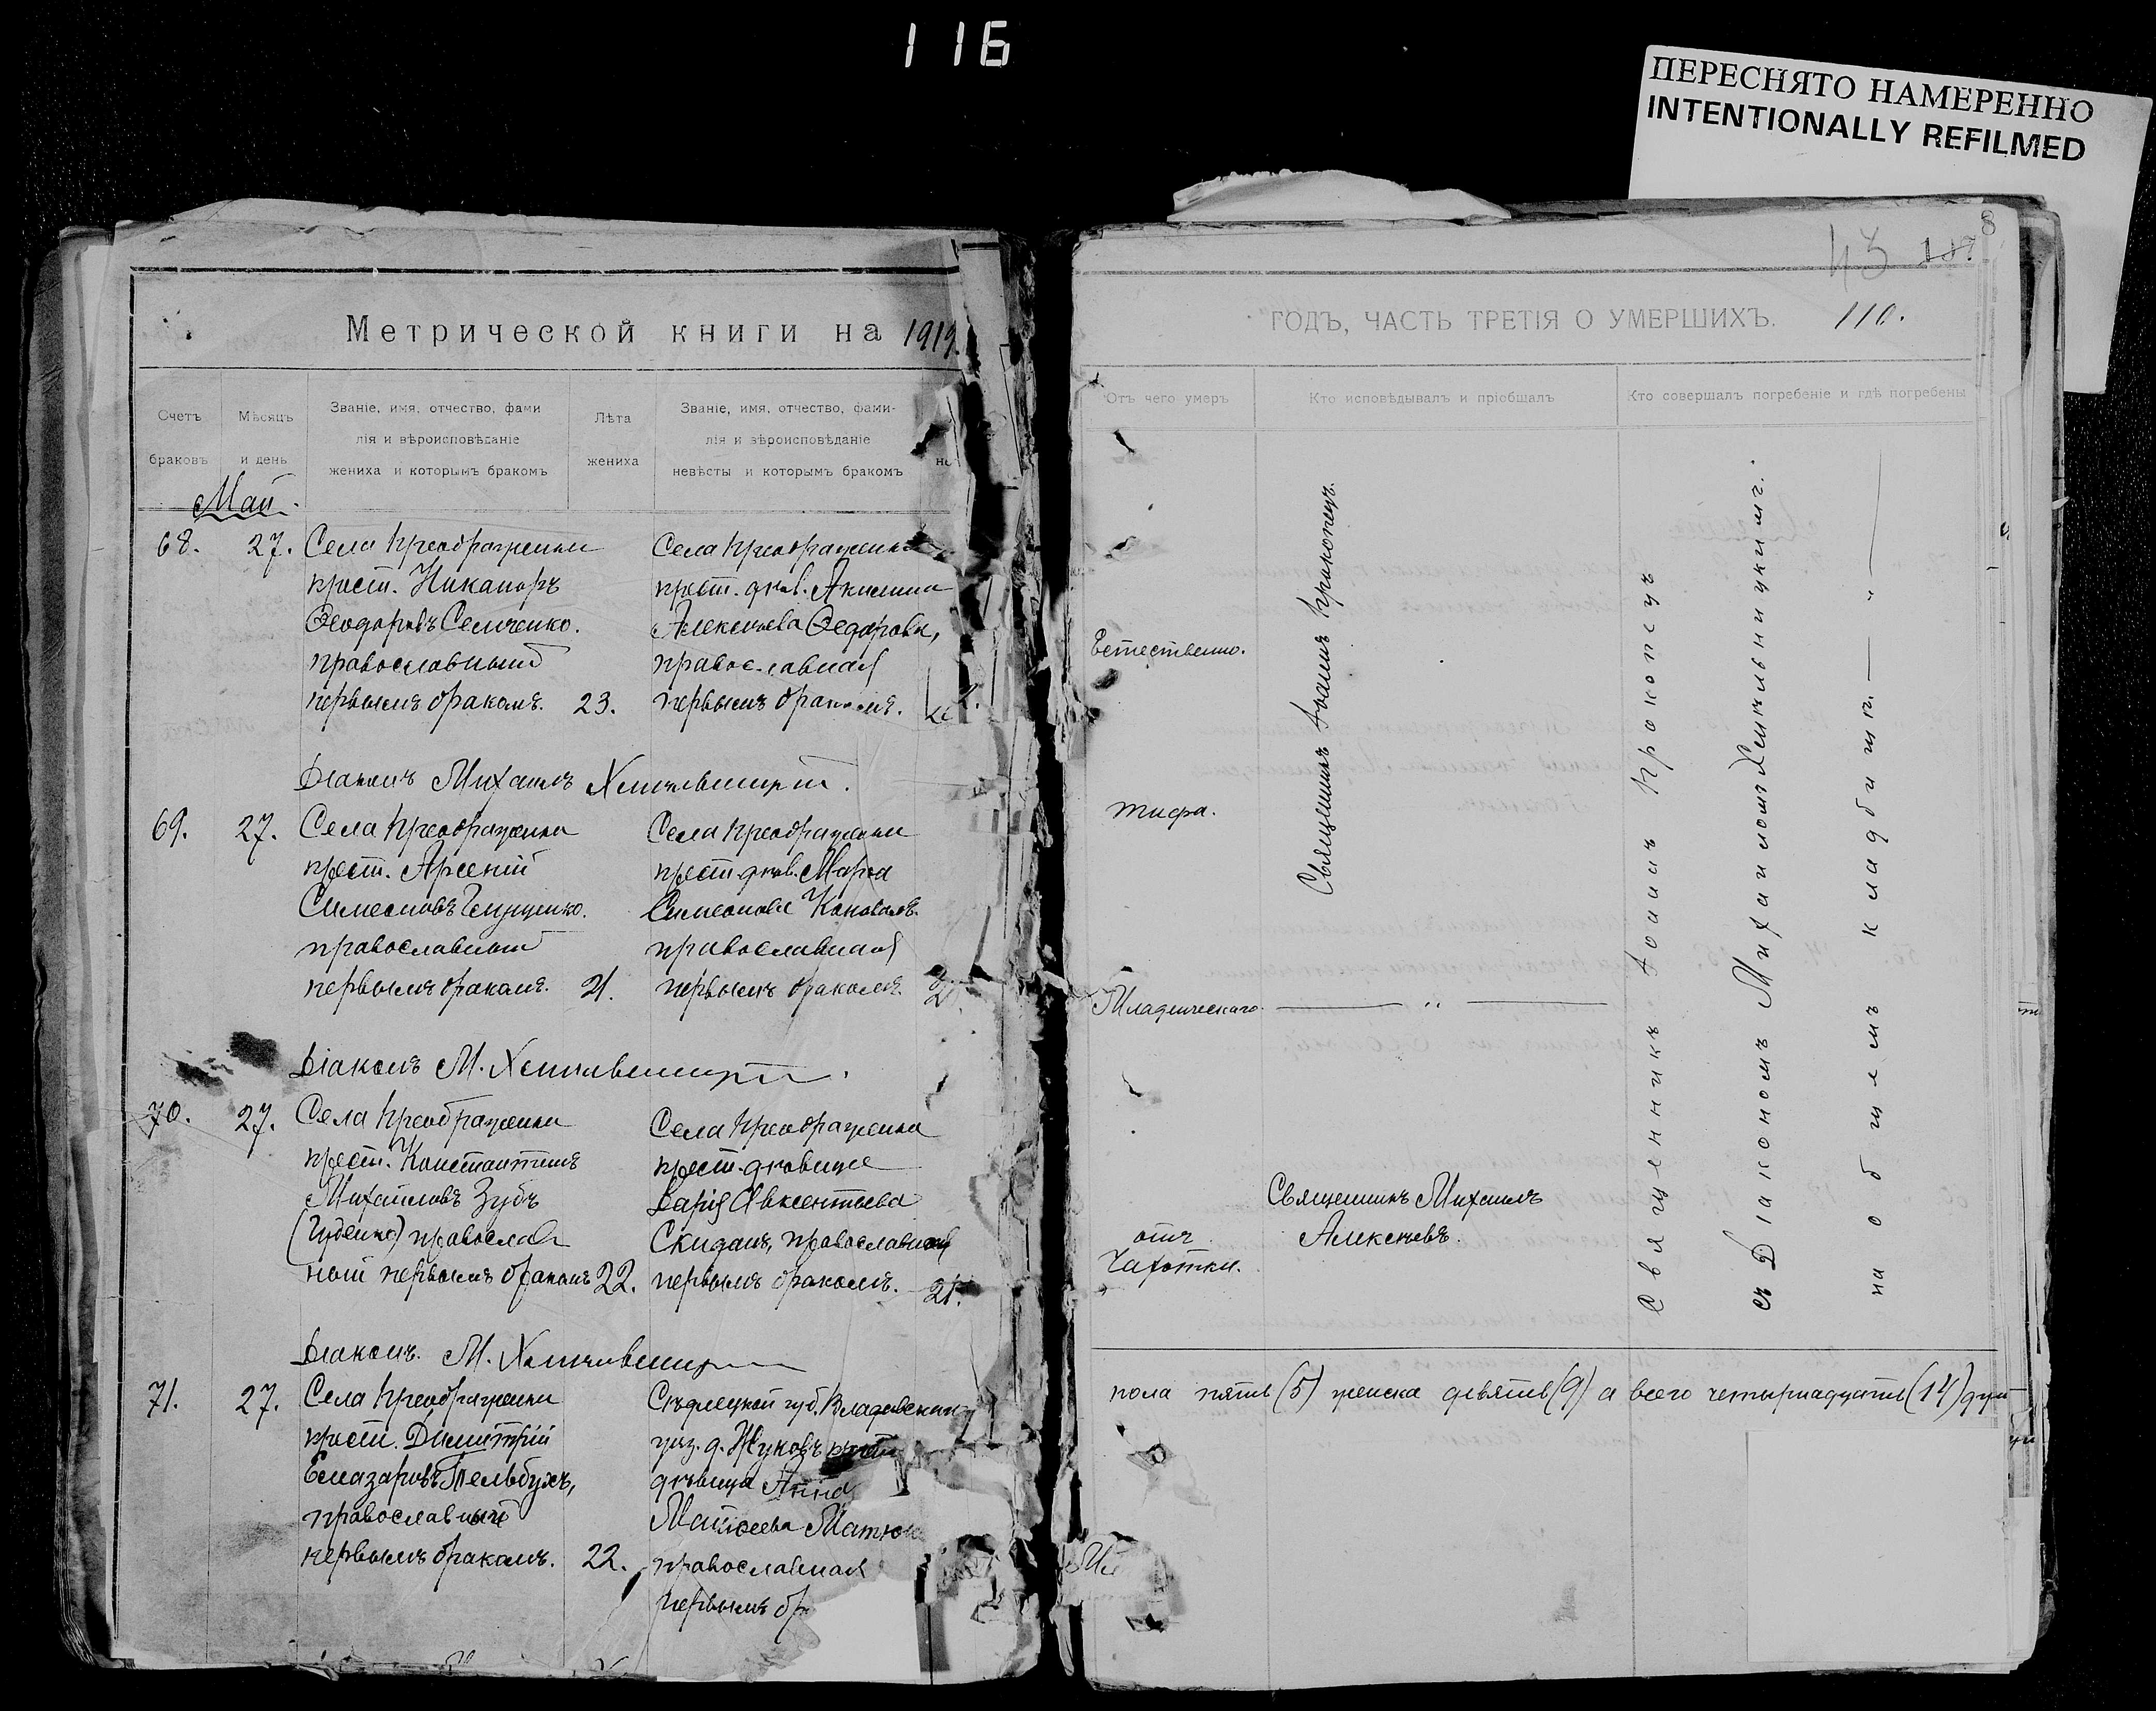 116
ПЕРЕСНЯТО НАМЕРЕННО
INTENTIONALLY REFILMED
Метрической книги на 1919
Счетъ браковъ
Мѣсяцъ и день
Званіе, имя, отчество, фами
лія и вѣроисповѣданіе
жениха и которымъ бракомъ
Лѣта
жениха
Званіе, имя, отчество, фами-
лія и вѣроисповѣданіе
невѣсты и которымъ бракомъ
Май.
68. 27. Села Преображенки
крест. Никаноръ
Ѳеодоровъ Семченко.
православный
первымъ бракомъ. 23.
Села Преображенки
крест. дѣв. Акилина
Алексѣева Ѳедорова,
православная
первымъ бракомъ.
Діаконъ Михаилъ Хмильницкій.
69. 27. Села Преображенки
крест. Арсеній
Симеоновъ
православный
первымъ бракомъ. 21.
Села Преображенки
крест. дѣв. Марѳа
Симеонова Коновалъ.
православная
первымъ бракомъ.
Діаконъ М. Хмильницкій.
70. 27. Села Преображенки
крест. Константинъ
Михаиловъ Зубъ
православ
ный первымъ бракомъ 22.
Села Преображенки
крест. дѣвица
Дарія Авксентьева
Скиданъ, православная
первымъ бракомъ. 21.
Діаконъ. М. Хмильницкій
71. 27. Села Преображенки
крест. Димитрій
Елиазаровъ Пельбухъ,
православный
первымъ бракомъ. 22.
Сѣдлецкой губ. Владавскаго
уѣз. д. Жуковъ крест
дѣвица Анна
Матѳеева Матюк
православная
первымъ бр
43 107
8
ГОДЪ, ЧАСТЬ ТРЕТІЯ О УМЕРШИХЪ. 110.
Отъ чего умеръ
Кто исповѣдывалъ и пріобщалъ
Кто совершалъ погребеніе и гдѣ погребены
Естественно.
тифа.
Младенческаго
отъ
Чахотки.
Священникъ Іоаннъ Прокопецъ.
Священникъ Михаилъ
Алексѣевъ.
Священникъ Іоаннъ Прокопецъ
съ Діакономъ Михаиломъ Хмильницкимъ.
на общемъ кладбищѣ.
пола пять (5) женска девять (9) а всего четырнадцать (14) душ